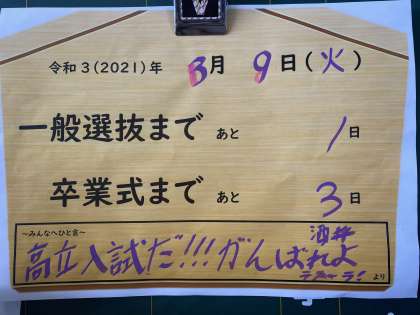 令和3(2021)年 3月 9日(火)
一般選抜まで あと 1日
卒業式まで あと 3日
～みんなへひと言～
高立入試だ!!!がんばれよ
より